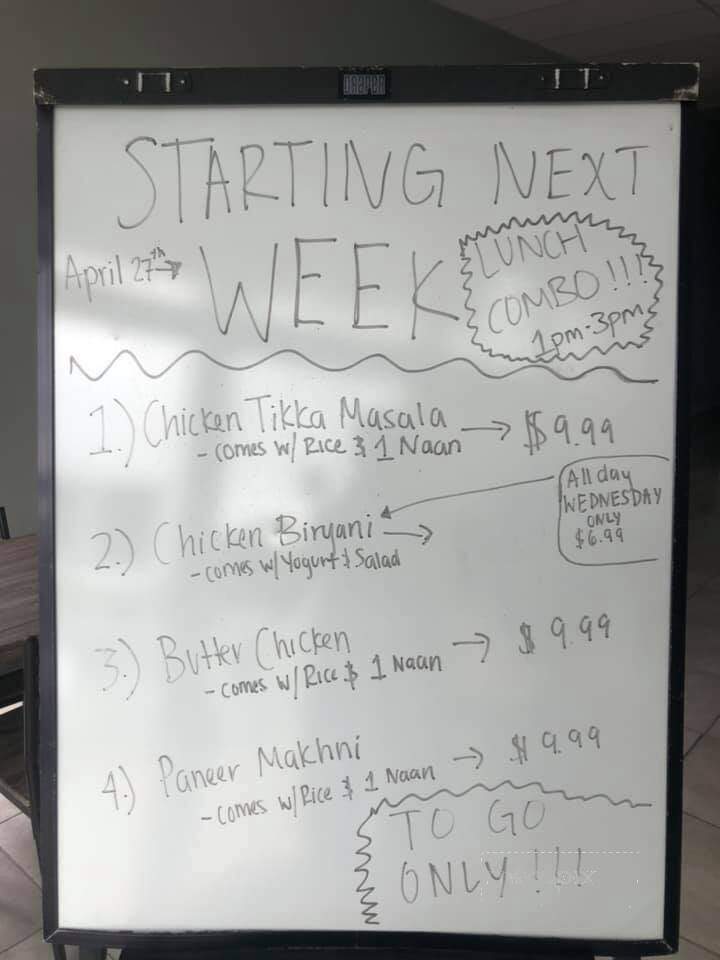 DRAPER
STARTING NEXT
April 27th → WEEK
LUNCH
COMBO!!!
1pm-3pm
1.) Chicken Tikka Masala → $9.99
- comes w/ Rice & 1 Naan
All day
WEDNESDAY
ONLY
$6.99
2.) Chicken Biryani →
- comes w/ Yogurt & Salad
3.) Butter Chicken → $9.99
- comes w/ Rice & 1 Naan
4.) Paneer Makhni → $9.99
- comes w/ Rice & 1 Naan
TO GO
ONLY!!!